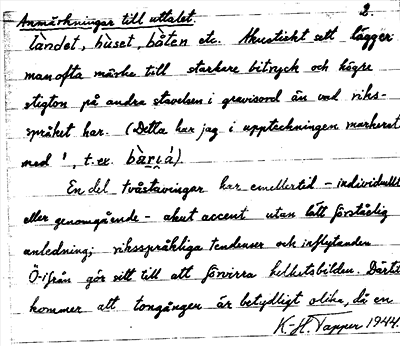 Anmärkningar till uttalet. 2.
landet, huset, båten etc. Akustiskt sett lägger
man ofta märke till starkare bitryck och högre
stigton på andra stavelsen i gravisord än vad riks-
språket har. (Detta har jag i uppteckningen markerat
med ', t. ex.
En del tvåstavingar har emellertid - individuellt
eller genomgående - akut accent utan lätt förståelig
anledning; riksspråkliga tendenser och inflytanden
Ö-ifrån gör sitt till att förvirra helhetsbilden. Därtill
kommer att tongången är betydligt olika, då en
K-H. Tapper 1944.